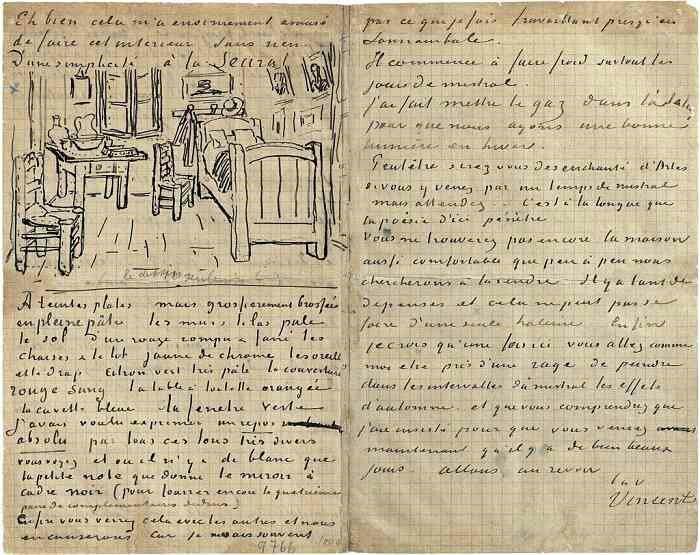 Eh bien cela m'a enormement amusé
de faire cet interieur sans rien.
D'une simplicité à la Seurat
A teintes plates mais grossierement brossées
en pleine pâte les murs lilas pale
le sol d'un rouge rompu & fané les
chaises & le lit jaune de chrome les oreillers
et le drap citron vert très pâle la couverture
rouge sang la table à toilette orangée
la cuvette bleue la fenetre verte
J'avais voulu exprimer un repos
absolu par tous ces tons très divers
vous voyez et où il n'y a de blanc que
la petite note que donne le miroir à
cadre noir (pour fourrer encore la quatrième
paire de complementaires dedans)
Enfin vous verrez cela avec les autres et nous
en causerons car je ne sais souvent
9766
pas ce que je fais travaillant presqu'en
somnambule.
Il commence à faire froid surtout les
jours de mistral.
J'ai fait mettre le gaz dans
pour que nous ayons une bonne
lumière en hiver.
Peutêtre serez vous desenchanté d'Arles
si vous y venez par un temps de mistral
mais attendez .. C'est à la longue que
la poésie d'ici pénètre
Vous ne trouverez pas encore la maison
aussi comfortable que peu à peu nous
chercherons à la rendre. Il y a tant de
depenses et cela ne peut pas se
faire d'une seule haleine. Enfin
je crois qu'une fois ici vous allez comme
moi etre pris d'une rage de peindre
dans les intervalles du mistral les effets
d'automne. et que vous comprendrez que
j'aie insisté pour que vous veniez
maintenant qu'il y a de bien beaux
jours. allons au revoir
t. à v.
Vincent